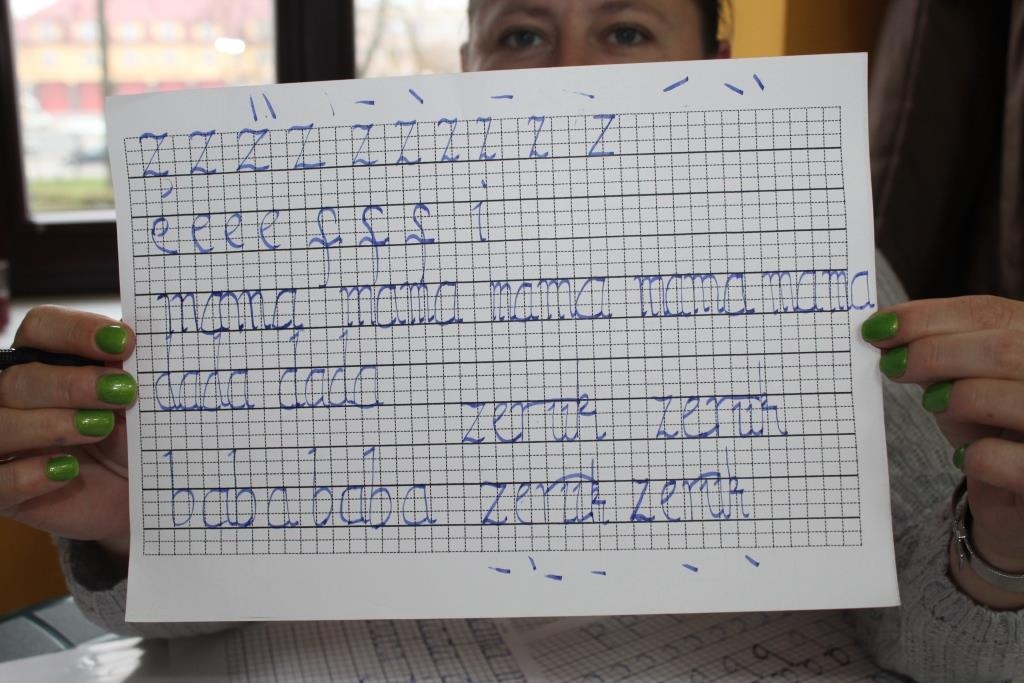 z z z z z z z z z z
e e e e f f f i
mama mama mama mama mama
dada dada
zeruk zeruk
baba baba zeruk zeruk